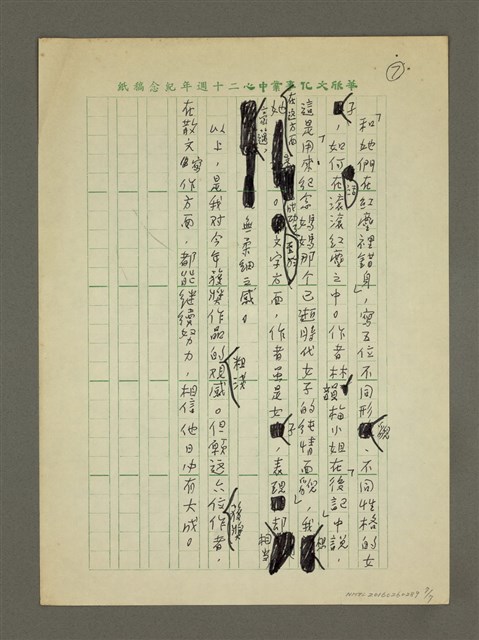 ⑦
華欣文化事業中心二十週年紀念稿紙
「和她們在紅塵裡錯身」，寫五位不同形貌、不同性格的女
子，如何在滾滾紅塵之中。作者林韻梅小姐在「後記」中說，
：「這是用來紀念媽媽那个已逝時代女子的純情面貌」，我想
在这方面，她成功了。至於文字方面，作者虽是女子，表現却相当
無柔細之感。
以上，是我对今年獲獎作品的粗淺观感。但願这六位獲獎作者，
在散文寫作方面，都能继续努力，相信他日必有大成。
NMTL20160260289 7/7